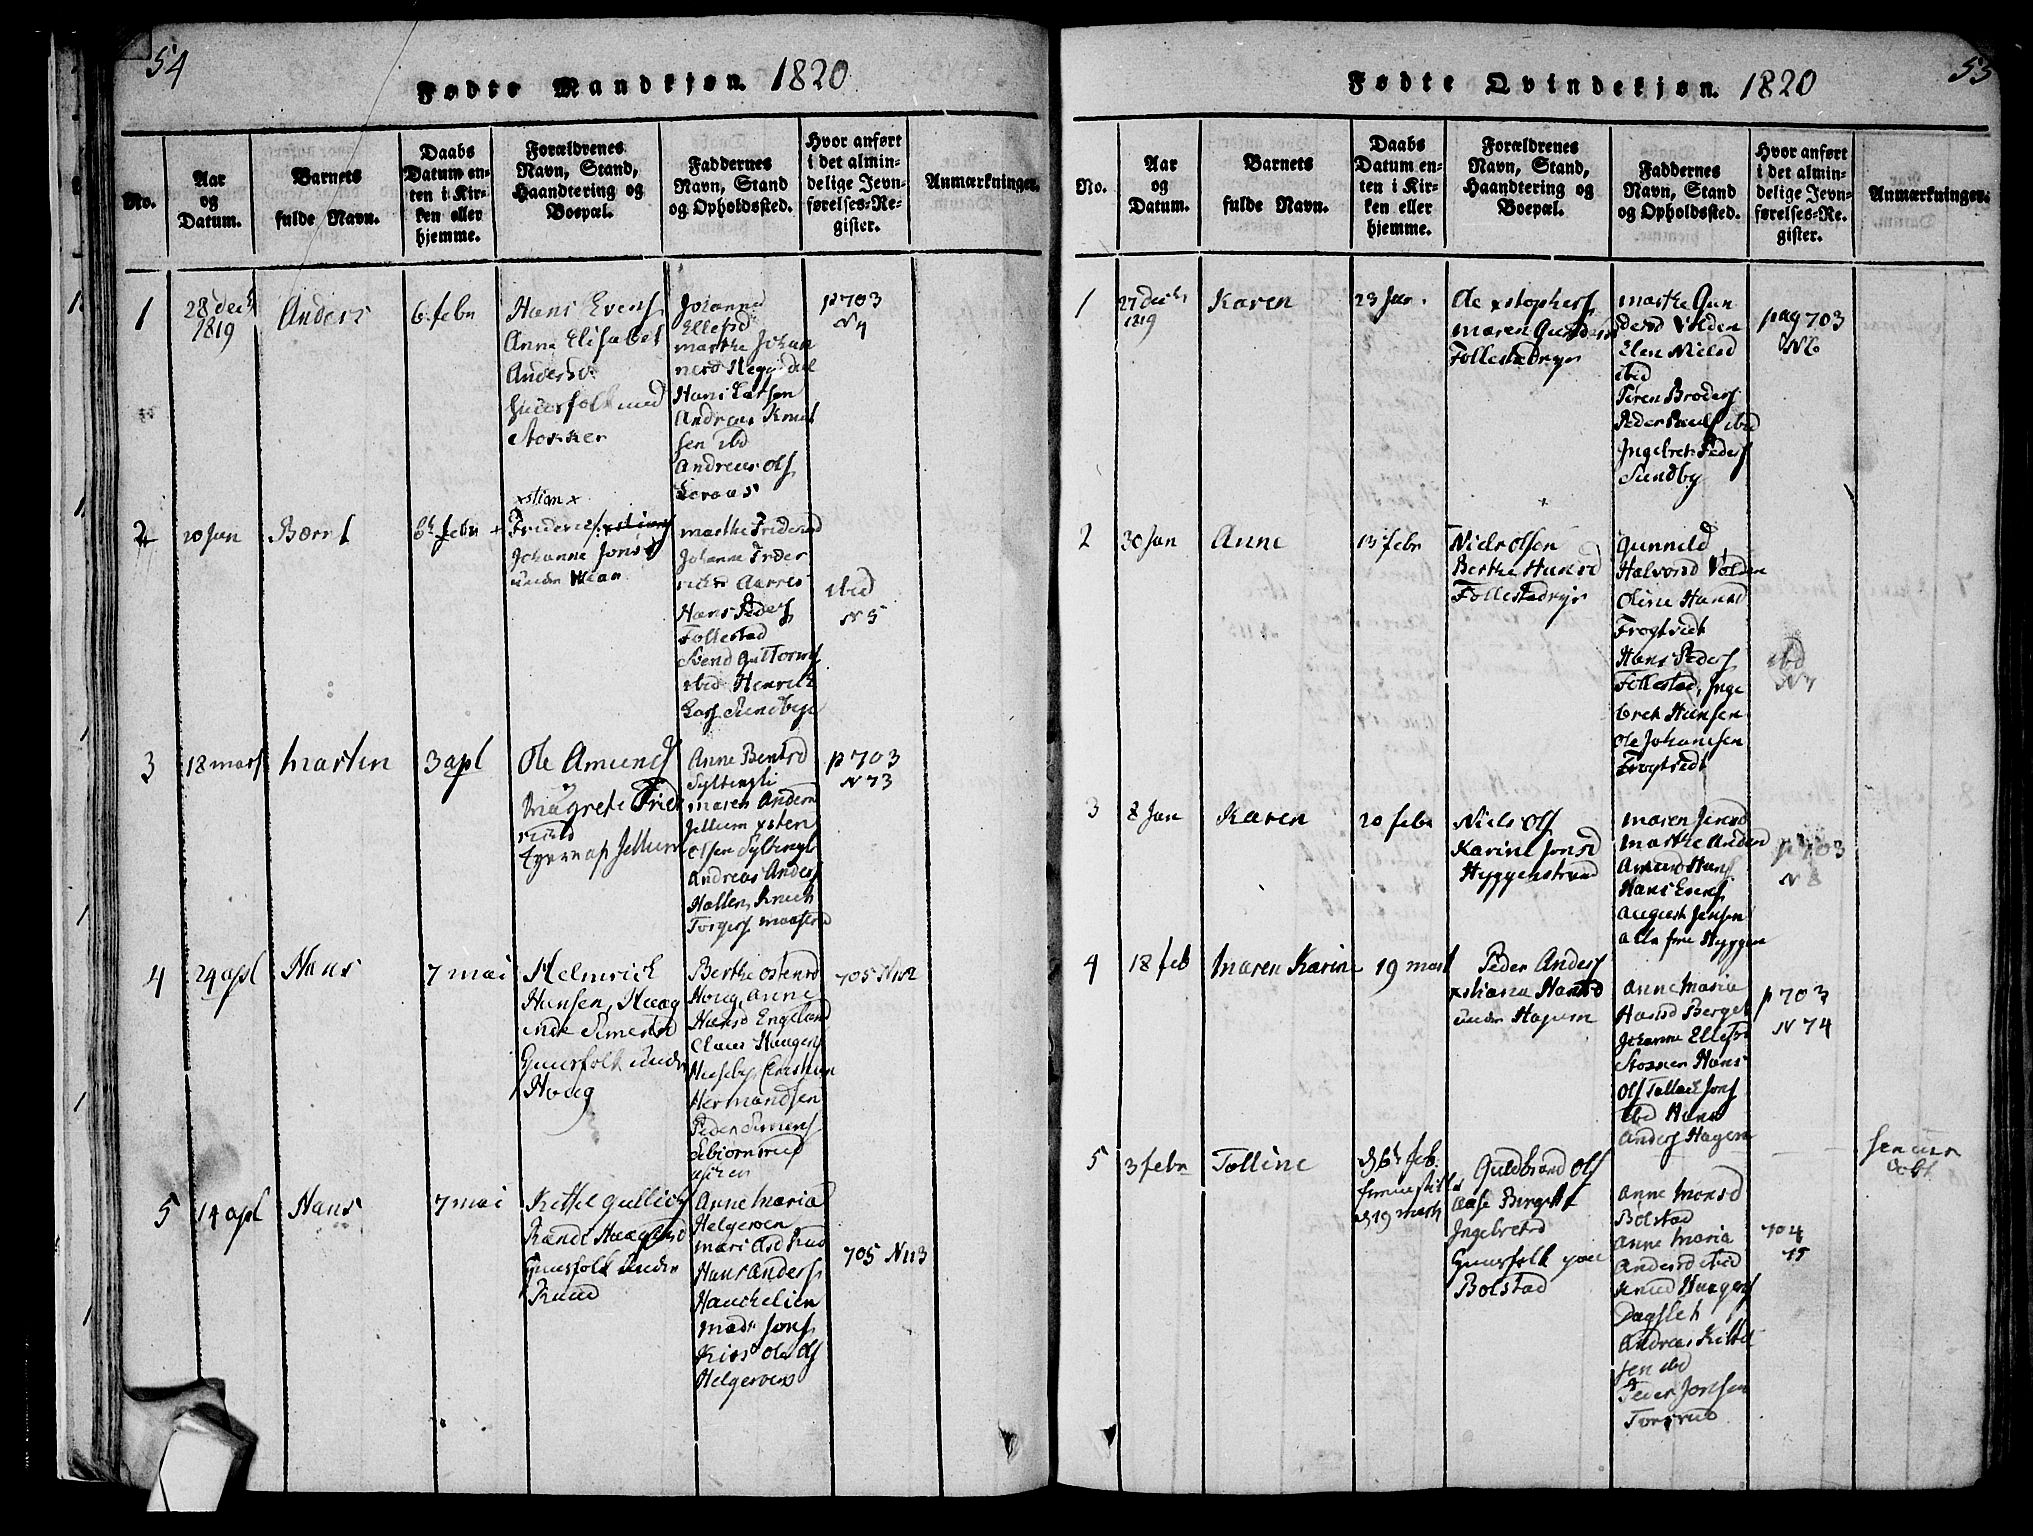 54
Fødte Mandkjøn. 1820
No.
Aar
og
Datum.
Barnets
fulde Navn.
Daabs
Datum en-
ten i Kir-
ken eller
hjemme.
Forældrenes
Navn, Stand,
Haandtering og
Boepæl.
Faddernes
Navn, Stand
og Opholdssted.
Hvor anført
i det almin-
delige Jevn-
førelses-Re-
gister.
Anmærkninger.
1
28 dec
1819
Anders
6 febr
Hans Evens
Anne Elisabet
Andersd
huusfolk med
Stokker
Johanne
Ellefsd
marthe Johan
nesd
Hans Larsen
Andreas Knud
sen ibd
Andreas Ols
p 703
N 4
2
20 Jan
Bærnt
6 febr
xstian x
Frideric
Johanne Jonsd
under
marthe Fridericsd
Johanne Frider
Hans Peders
Follestad
Svend Guttorms
ibid Henrik
Lars Sundbye
ibid
N 5
3
18 mars
Martin
3 apl
Ole Amunds
Magrete Frid
ricksd
Jellum
Anne Berntsd
Syltingli
maren Anders
Jellum xsten
Olsen Syltingli
Andreas Anders
Hallen, Knud
Torgers
p 703
N 73
4
24 apl
Hans
7 mai
Helmrick
Hansen, Haag
Simensd
Huusfolk under
Houg
Berthe Ostensd
Houg, Anne
Hansd Engeland
Claus Haagens
Huseby, Christian
Hermandsen
Peder Simens
705 N112
5
14 apl
Hans
7 mai
Kittel Gullich
Randi Haagensd
Huusfolk under
Ruud
Anne Maria
Helgeroen
mari Olsd Ruud
Hans Anders
Haukelien
mads Jons
Kios Ole Ols
Helgeroen
705 N113
55
Fødte Qvindekjøn. 1820
No.
Aar
og
Datum.
Barnets
fulde Navn.
Daabs
Datum en-
ten i Kir-
ken eller
hjemme.
Forældrenes
Navn, Stand,
Haandtering og
Boepæl.
Faddernes
Navn, Stand
og Opholdssted.
Hvor anført
i det almin-
delige Jevn-
førelses-Re-
gister.
Anmærkninger.
1
27 dec
1819
Karen
23 Jan.
Ole xstophers
maren Gundersd
Follestadrys
marthe Gun
dersd Volden
Elen Nielsd
ibid
Søren Broders
Peder Pauls ibid
Ingebret Peders
Sundby
pag 703
N 6
2
30 Jan
Anne
13 febr
Niels Olsen
Berthe Hansd
Follestadrys
Gunneld
Halvorsd Volden
Oline Hansd
Frogtvedt
Hans Peders
Follestad, Inge
bret Hansen
Ole Johansen
Frogtvedt
ibd
N 7
3
8 Jan
Karen
20 febr
Niels Ols
Karine Jonsd
Hyggenstrand
maren Jensd
marthe Andersd
Amund Hans
Hans Evens
August Jensen
alla fra Hyggen
p 703
N 8
4
18 feb
Maren Karine
19 mart
Peder Anders
xstiana Hansd
under Hagum
Anne Maria
Hansd Berget
Johanne Ellefsd
Stokker Hans
Ols Tollack Jons
ibid Hans
Anders Hagen
p 703
N 74
5
3 febr
Tolline
feb.
19 marts
Guldbrand Ols
Aase Birgitte
Ingebretsd
Huusfolk paa
Bolstad
Anne Monsd
Bolstad
Anne Maria
Andersd ibid
Knud Haagens
Dagslet
Andreas Kittel
sen ibd
Peder Jonsen
Torsrud
704
75
hjemme
døbt